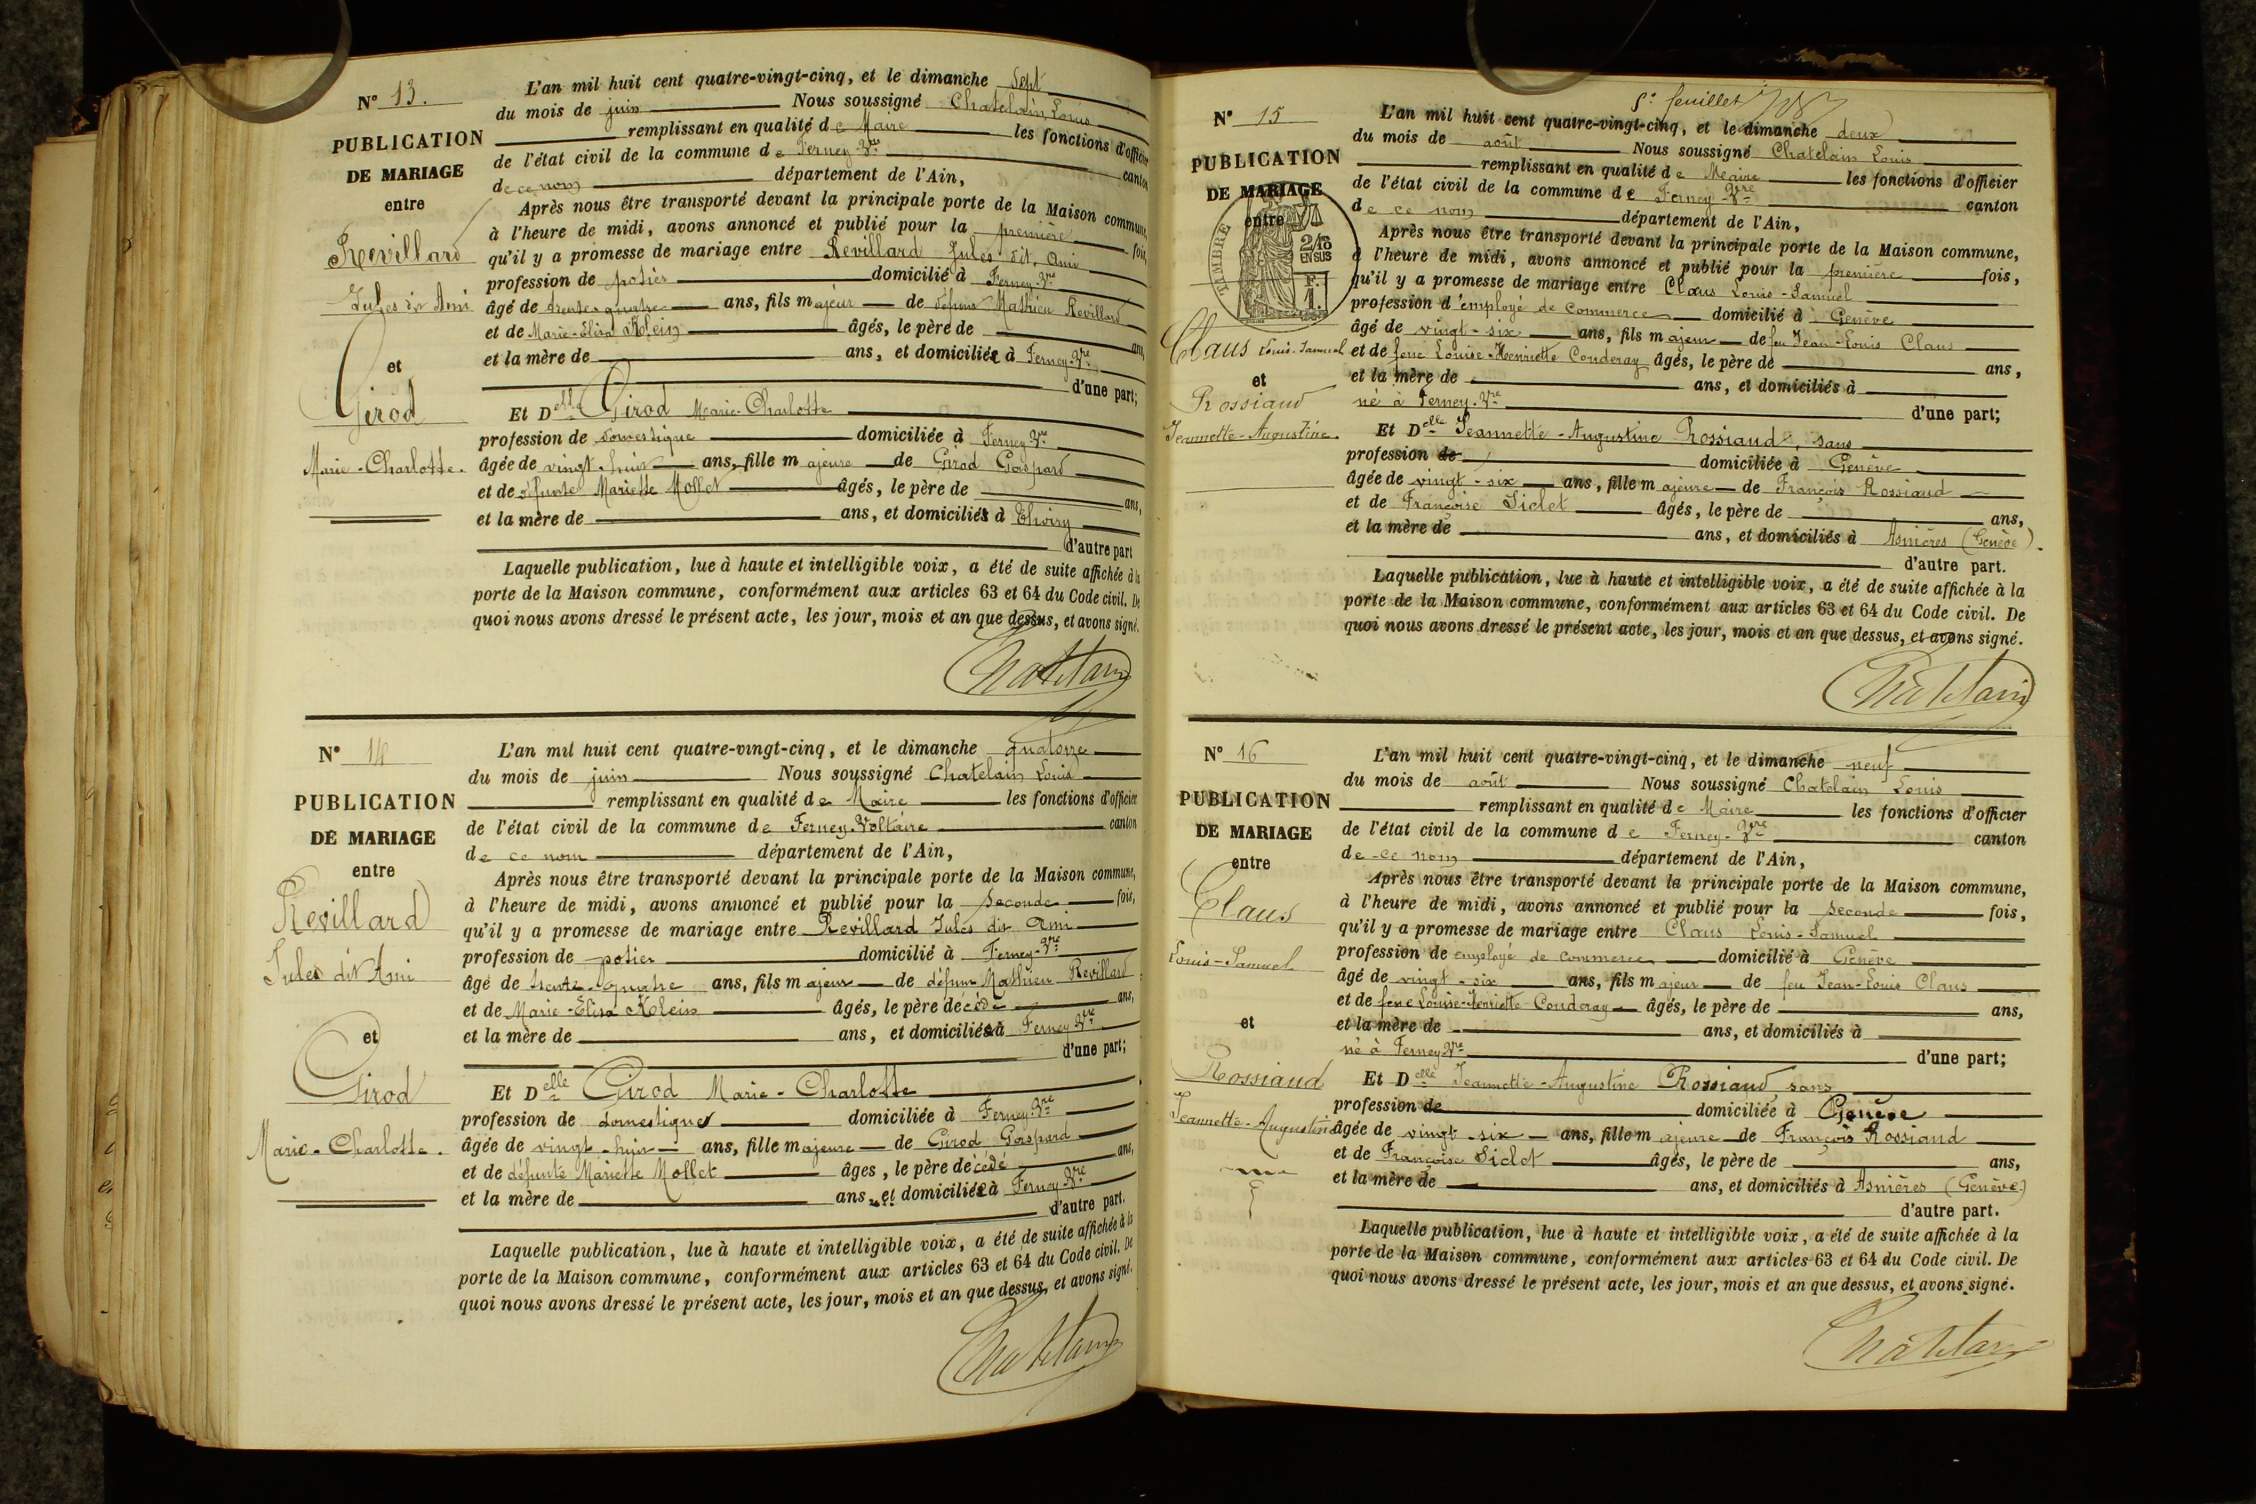 N° 13.
PUBLICATION
DE MARIAGE
entre
Revillard
Jules dit Ami
et
Girod
Marie-Charlotte.
L'an mil huit cent quatre-vingt-cinq, et le dimanche Sept
du mois de juin Nous soussigné Chatelain Louis
remplissant en qualité de Maire les fonctions d'officier
de l'état civil de la commune de Ferney-Vre canton
de ce nom département de l'Ain,
Après nous être transporté devant la principale porte de la Maison commune,
à l'heure de midi, avons annoncé et publié pour la première fois,
qu'il y a promesse de mariage entre Revillard Jules dit Ami
profession de potier domicilié à Ferney-Vre
âgé de trente-quatre ans, fils majeur de défunt Mathieu Revillard
et de Marie-Elisa Klein âgés, le père de ans,
et la mère de ans, et domiciliée à Ferney-Vre
d'une part;
Et Delle Girod Marie-Charlotte
profession de domestique domiciliée à Ferney-Vre
âgée de vingt-huit ans, fille majeure de Girod Gaspard
et de défunte Mariette Mollet âgés, le père de ans,
et la mère de ans, et domiciliés à Thoiry
d'autre part
Laquelle publication, lue à haute et intelligible voix, a été de suite affichée à la
porte de la Maison commune, conformément aux articles 63 et 64 du Code civil. De
quoi nous avons dressé le présent acte, les jour, mois et an que dessus, et avons signé.
Chatelain
N° 14
PUBLICATION
DE MARIAGE
entre
Revillard
Jules dit Ami
et
Girod
Marie-Charlotte.
L'an mil huit cent quatre-vingt-cinq, et le dimanche quatorze
du mois de juin Nous soussigné Chatelain Louis
remplissant en qualité de Maire les fonctions d'officier
de l'état civil de la commune de Ferney-Voltaire canton
de ce nom département de l'Ain,
Après nous être transporté devant la principale porte de la Maison commune,
à l'heure de midi, avons annoncé et publié pour la seconde fois,
qu'il y a promesse de mariage entre Revillard Jules dit Ami
profession de potier domicilié à Ferney-Vre
âgé de trente-quatre ans, fils majeur de défunt Mathieu Revillard
et de Marie-Elisa Klein âgés, le père décédé ans,
et la mère de ans, et domiciliée à Ferney Vre
d'une part;
Et Delle Girod Marie-Charlotte
profession de domestique domiciliée à Ferney-Vre
âgée de vingt-huit ans, fille majeure de Girod Gaspard
et de défunte Mariette Mollet âges, le père décédé ans,
et la mère de ans, et domiciliée à Ferney Vre
d'autre part.
Laquelle publication, lue à haute et intelligible voix, a été de suite affichée à la
porte de la Maison commune, conformément aux articles 63 et 64 du Code civil. De
quoi nous avons dressé le présent acte, les jour, mois et an que dessus, et avons signé.
Chatelain
feuillet
N° 15
PUBLICATION
DE MARIAGE
entre
TIMBRE
2/10
EN SUS
F.
1.
Claus Louis-Samuel
et
Rossiaud
Jeannette-Augustine.
L'an mil huit cent quatre-vingt-cinq, et le dimanche deux
du mois de août Nous soussigné Chatelain Louis
remplissant en qualité de Maire les fonctions d'officier
de l'état civil de la commune de Ferney-Vre canton
de ce nom département de l'Ain,
Après nous être transporté devant la principale porte de la Maison commune,
à l'heure de midi, avons annoncé et publié pour la première fois,
qu'il y a promesse de mariage entre Claus Louis-Samuel
profession d'employé de Commerce domicilié à Genève
âgé de vingt-six ans, fils majeur de feu Jean-Louis Claus
et de feue Louise-Henriette Conderay âgés, le père de ans,
et la mère de ans, et domiciliés à
né à Ferney-Vre d'une part;
Et Delle Jeannette-Augustine Rossiaud, sans
profession de domiciliée à Genève
âgée de vingt-six ans, fille majeure de François Rossiaud
et de Françoise Siclet âgés, le père de ans,
et la mère de ans, et domiciliés à Asnières (Genève).
d'autre part.
Laquelle publication, lue à haute et intelligible voix, a été de suite affichée à la
porte de la Maison commune, conformément aux articles 63 et 64 du Code civil. De
quoi nous avons dressé le présent acte, les jour, mois et an que dessus, et avons signé.
Chatelain
N° 16
PUBLICATION
DE MARIAGE
entre
Claus
Louis-Samuel
et
Rossiaud
Jeannette-Augustine
L'an mil huit cent quatre-vingt-cinq, et le dimanche neuf
du mois de août Nous soussigné Chatelain Louis
remplissant en qualité de Maire les fonctions d'officier
de l'état civil de la commune de Ferney-Vre canton
de ce nom département de l'Ain,
Après nous être transporté devant la principale porte de la Maison commune,
à l'heure de midi, avons annoncé et publié pour la seconde fois,
qu'il y a promesse de mariage entre Claus Louis-Samuel
profession de employé de commerce domicilié à Genève
âgé de vingt-six ans, fils majeur de feu Jean-Louis Claus
et de feue Louise-Henriette Conderay âgés, le père de ans,
et la mère de ans, et domiciliés à
né à Ferney Vre d'une part;
Et Delle Jeannette-Augustine Rossiaud sans
profession de domiciliée à Genève
âgée de vingt-six ans, fille majeure de François Rossiaud
et de Françoise Siclet âgés, le père de ans,
et la mère de ans, et domiciliés à Asnières (Genève)
d'autre part.
Laquelle publication, lue à haute et intelligible voix, a été de suite affichée à la
porte de la Maison commune, conformément aux articles 63 et 64 du Code civil. De
quoi nous avons dressé le présent acte, les jour, mois et an que dessus, et avons signé.
Chatelain